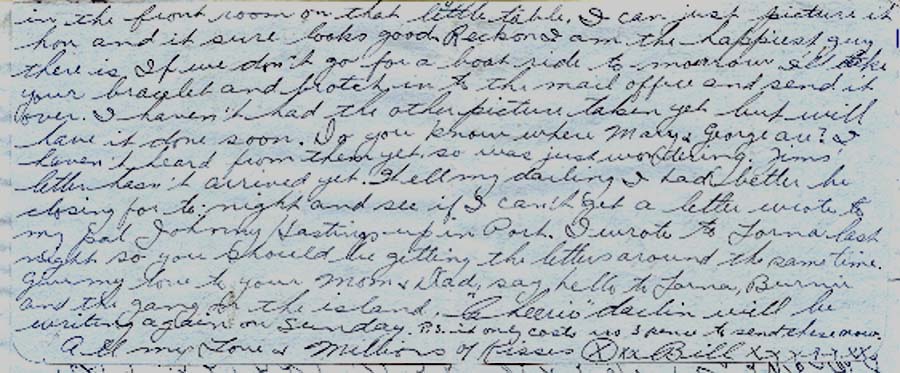 in the front room on that little table. I can just picture it
hon and it sure looks good. Reckon I am the happiest guy
there is. If we don't go for a boat ride to morrow I'll take
your bracelet and brotch in to the mail office and send it
over. I haven't had the other picture taken yet but will
have it done soon. Do you know where Mary & George are? I
haven't heard from them yet, so was just wondering. Jims'
letter hasn't arrived yet. Well my darling I had better be
closing for to-night and see if I can't get a letter wrote to
my pal Johnny Hastings up in Port. I wrote to Lorna last
night so you should be getting the letters around the same time.
Give my love to your Mom & Dad, say hello to Lorna,
and the gang on the island. "Cheerio" darlin will be
writing again on Sunday. P.S. it only costs us 3 pence to send these now.
All my Love & Millions of Kisses X xx Bill x x x x x xx